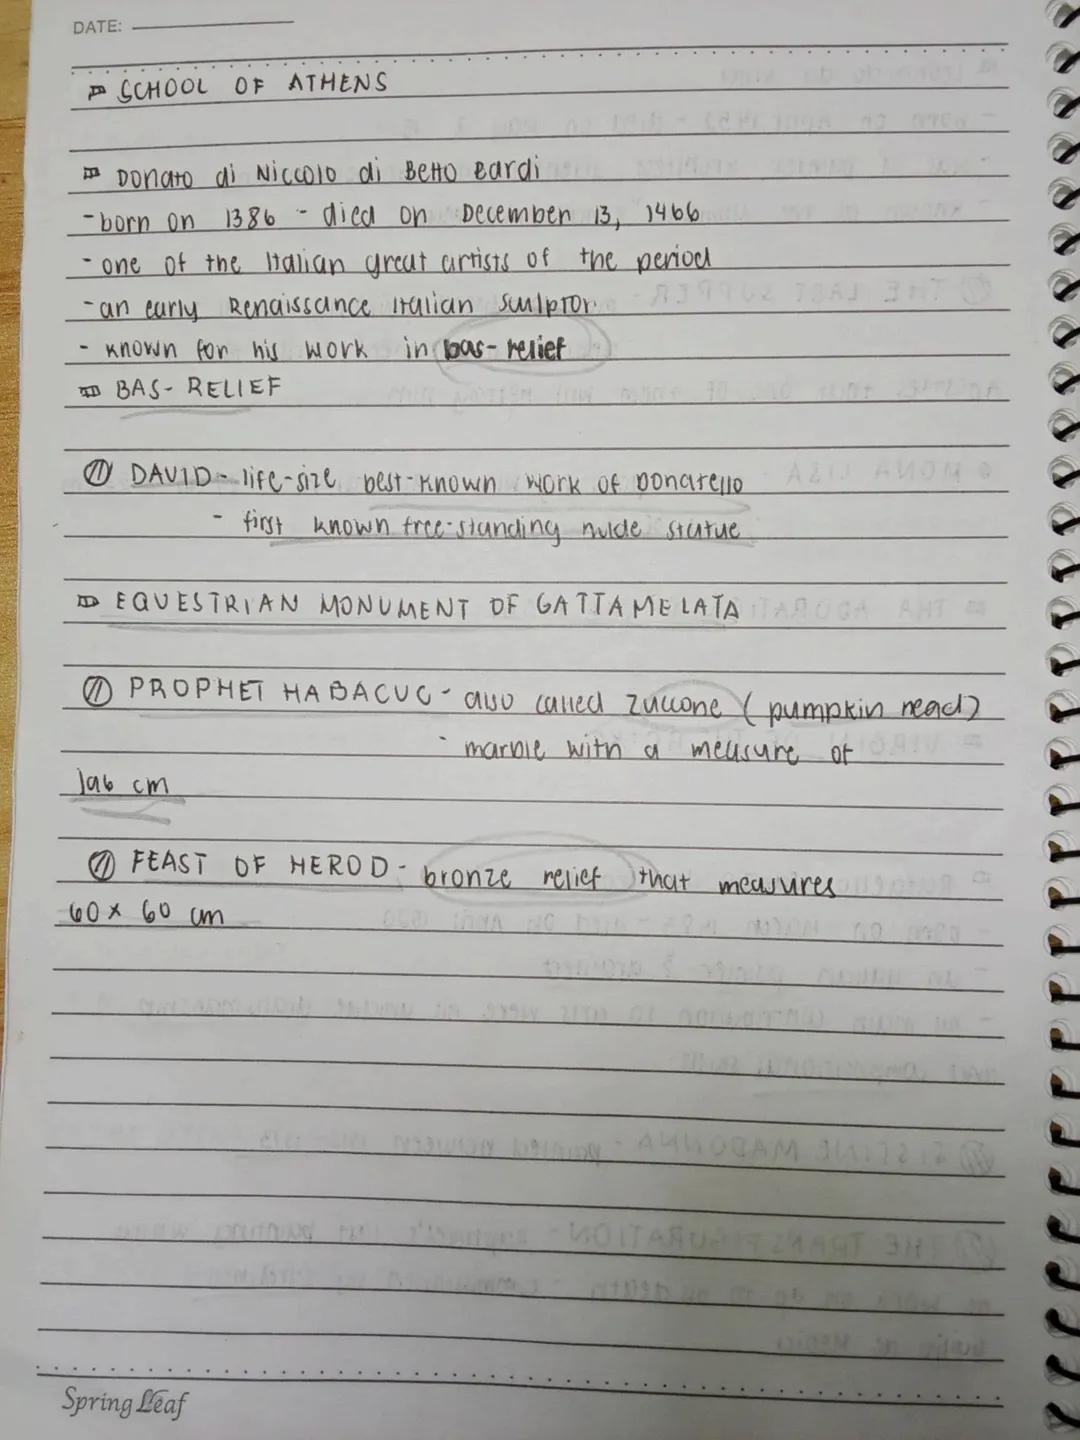 DATE:
SCHOOL OF ATHENS
Donato di Niccolo di Betto Bardi
- born on 1386 - died on December 13, 1466
- one of the Italian great artists of the period
- an early Renaissance Italian sculptor.
- known for his work in bas-relief
BAS-RELIEF
DAVID - life-size best-known work of Donatello
- first known free-standing nude statue
EQUESTRIAN MONUMENT OF GATTAMELATA
PROPHET HABACUC - also called Zuccone (pumpkin head)
- marble with a measure of
196 cm
FEAST OF HEROD - bronze relief that measures
60 x 60 cm
Spring Leaf